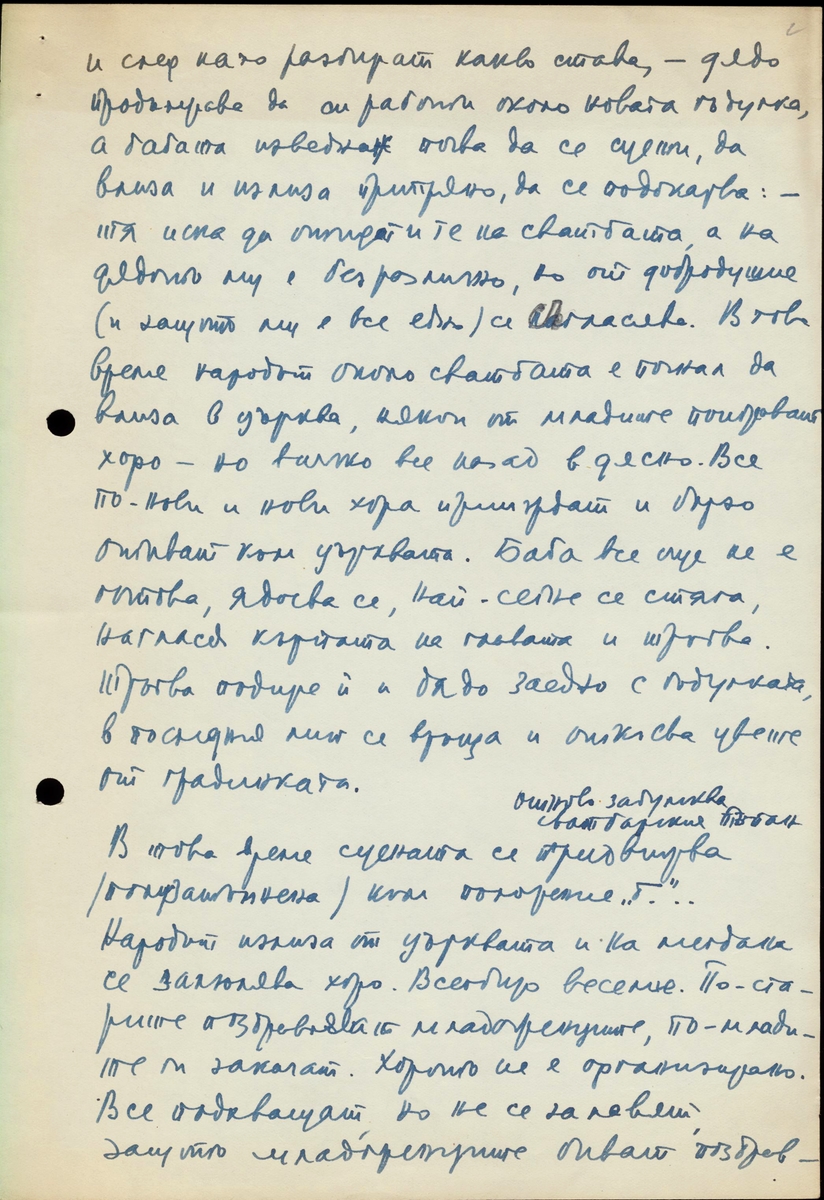 2
и след като разбират какво става, – дядо
продължава да си работи около новата гъдулка,
а бабата изведнаж почва да се суети, да
влиза и излиза припряно, да се подсказва: –
тя иска да отидат и те на сватбата, а на
дядото му е безразлично, но от добродушие
(и защото му е все едно) се съгласява. В това
време народът около сватбата е почнал да
влиза в църква, някои от младите поиграват
хоро – но всичко все назад в дясно. Все
по-нови и нови хора прииждат и бързо
отиват към църквата. Баба все още не е
готова, ядосва се, най-сетне се стяга,
нагласи кърпата на главата и тръгва.
Тръгва подире ѝ и дядо заедно с гъдулката,
в последния миг се връща и откъсва цвете
от градинката.
отново забумква
сватбарския тъпан
В това време сцената се придвижва
/полузатъмнена/ към положение „Г."..
Народът излиза от църквата и на мегдана
се залюлява хоро. Всеобщо веселие. По-ста-
рите поздравяват младоженците, по-млади-
те ги закачат. Хорото не е организирано.
Все подхващат, но не се залавят,
защото младоженците биват поздрав-